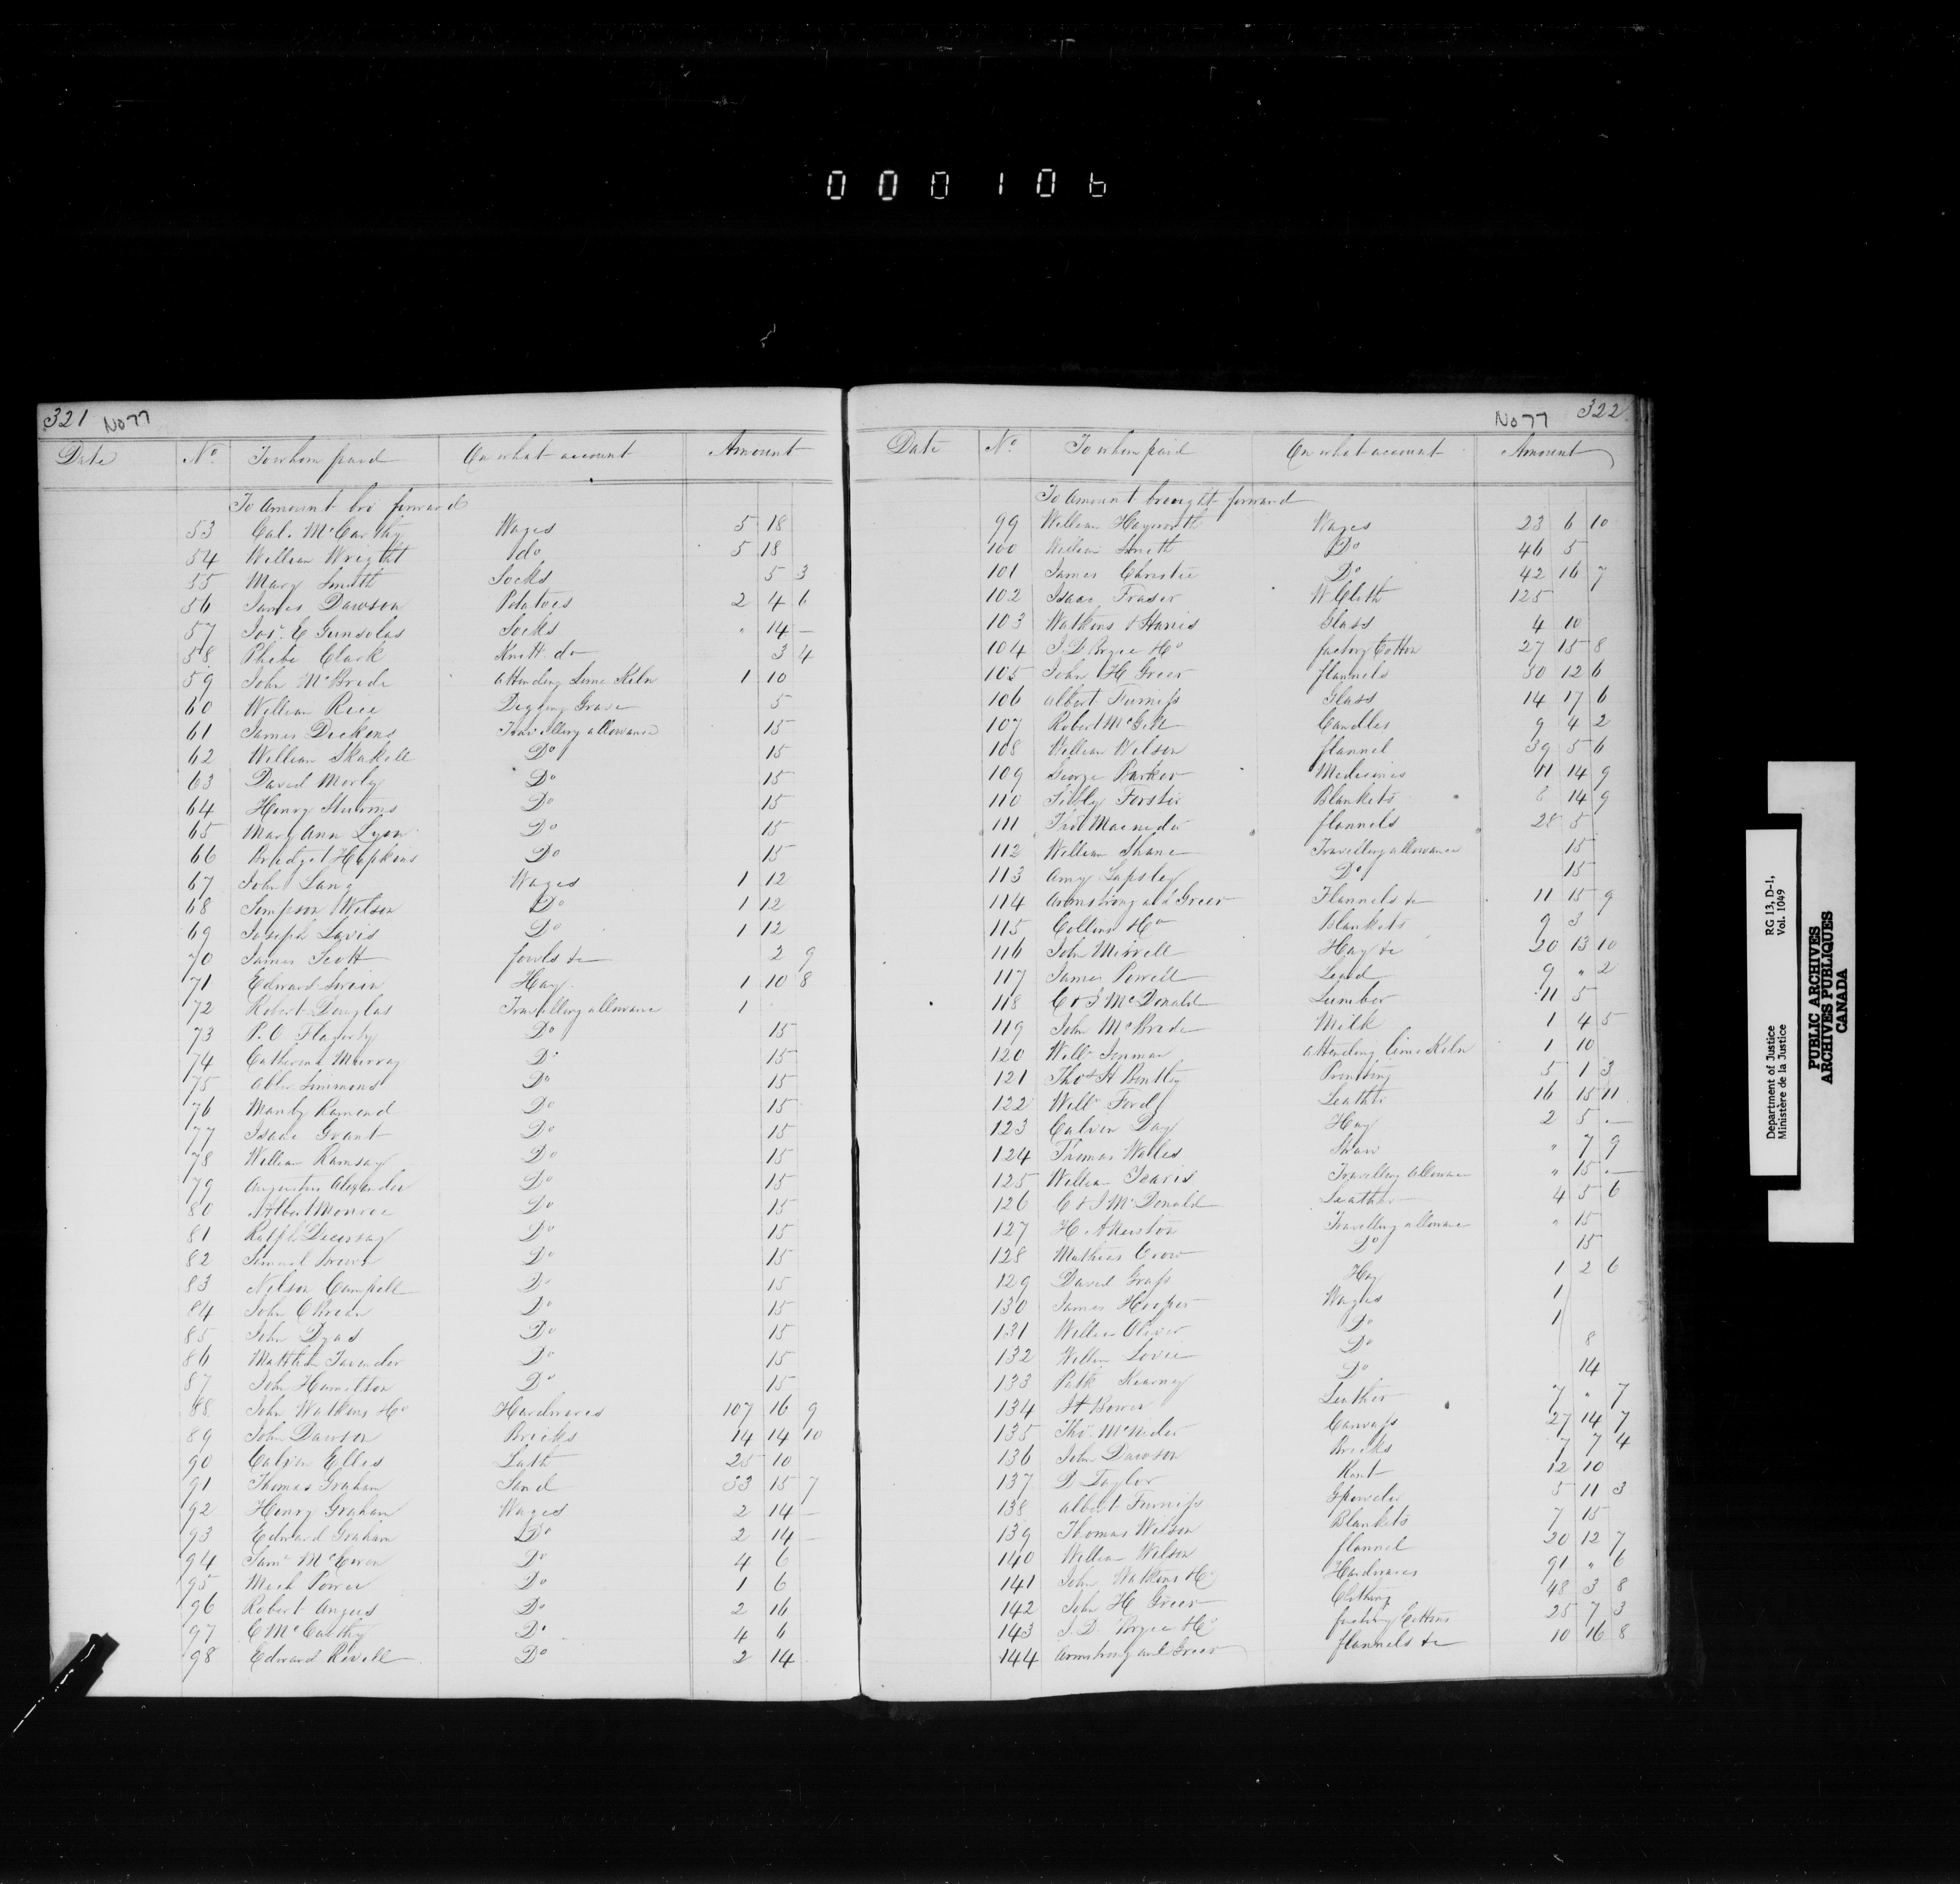 000106
321 No 77
Date No. To whom paid On what account Amount
To Amount bro forward
53 Cal. McCarthy Wages 5 18
54 William Wright do 5 18
55 Mary Smith Socks 5 3
56 James Dawson Potatoes 2 4 6
57 Jos. C Gunsolas Socks " 14 —
58 Phebe Clark Knitt. do 3 4
59 John McBride attending Lime Kiln 1 10
60 William Rice Digging Grave 5
61 James Dickens Travelling allowance 15
62 William Skakell Do 15
63 David Morly Do 15
64 Henry Do 15
65 Mary Ann Lyon Do 15
66 Bridget Hopkins Do 15
67 John Lane Wages 1 12
68 Simpson Wilson Do 1 12
69 Joseph Lavis Do 1 12
70 James Scott fowls &c 2 9
71 Edward Swain Hay 1 10 8
72 Robert Douglas Travelling allowance 1
73 P. O Flagerty Do 15
74 Catherine Murray Do 15
75 Simmons Do 15
76 Manby Ramond Do 15
77 Isaac Grant Do 15
78 William Ramsay Do 15
79 Augustus Alexander Do 15
80 Albert Monroe Do 15
81 Ralph Do 15
82 Samuel Brown Do 15
83 Nelson Campell Do 15
84 John OBrien Do 15
85 John Dyas Do 15
86 Matthew Tavender Do 15
87 John Hamilton Do 15
88 John Watkins & Co Hardwares 107 16 9
89 John Dawson Bricks 14 14 10
90 Calvin Ellis Lath 25 10
91 Thomas Graham Sand 33 15 7
92 Henry Graham Wages 2 14 —
93 Edward Graham Do 2 14 —
94 Saml McEwen Do 4 6
95 Mich Power Do 1 6
96 Robert Angus Do 2 16
97 C McCarthy Do 4 6
98 Edward Revell Do 2 14
No 77 322
Date No. To whom paid On what account Amount
To Amount brought forward
99 William Hayworth Wages 23 6 10
100 William Smith Do 46 5
101 James Christie Do 42 16 7
102 Isaac Fraser W Cloth 125
103 Watkins & Harris Glass 4 10
104 J D Bryce & Co factory Cotton 27 15 8
105 John H Greer flannels 30 12 6
106 Albert Furniss Glass 14 17 6
107 Robert McGill Candles 9 4 2
108 William Wilson flannel 39 5 6
109 George Parker Medicines 41 14 9
110 Forster Blankets 8 14 9
111 Thos Macnider flannels 28 5
112 William Shane Travelling allowance 15
113 Amy Lapsley Do 15
114 Armstrong and Greer Flannels &c 11 15 9
115 Collins & Co Blankets 9 3
116 John Mirrell Hay &c 20 13 10
117 James Powell Lead 9 " 2
118 C & J McDonald Lumber 11 5
119 John McBride Milk 1 4 5
120 Willm Inman attending lime Kiln 1 10
121 Thos H Bentley Printing 5 1 3
122 Willm Ford Leather 16 15 11
123 Calvin Day Hay 2 5 —
124 Thomas Wallis Straw " 7 9
125 William Travelling allowance " 15 —
126 C & J McDonald Leather 4 5 6
127 H. Travelling allowance " 15
128 Mathias Crow Do 15
129 David Grass Hay 1 2 6
130 James Hooper Wages 1
131 William Oliver Do 1
132 William Lovie Do 8
133 Patk Kearney Do 14
134 Bower Leather 7 " 7
135 Thos. McNider Canvass 27 14 7
136 John Dawson Bricks 7 7 4
137 D Taylor Rent 12 10
138 Albert Furniss Gpowder 5 11 3
139 Thomas Wilson Blankets 7 15
140 William Wilson flannel 20 12 7
141 John Watkins & Co Hardwares 91 " 6
142 John H Greer Clothing 48 3 8
143 J. D. Bryce & Co factory Cottons 25 7 3
144 Armstrong and Greer flannels &c 10 16 8
Department of Justice
Ministère de la Justice
RG 13, D-1,
Vol. 1049
PUBLIC ARCHIVES
ARCHIVES PUBLIQUES
CANADA